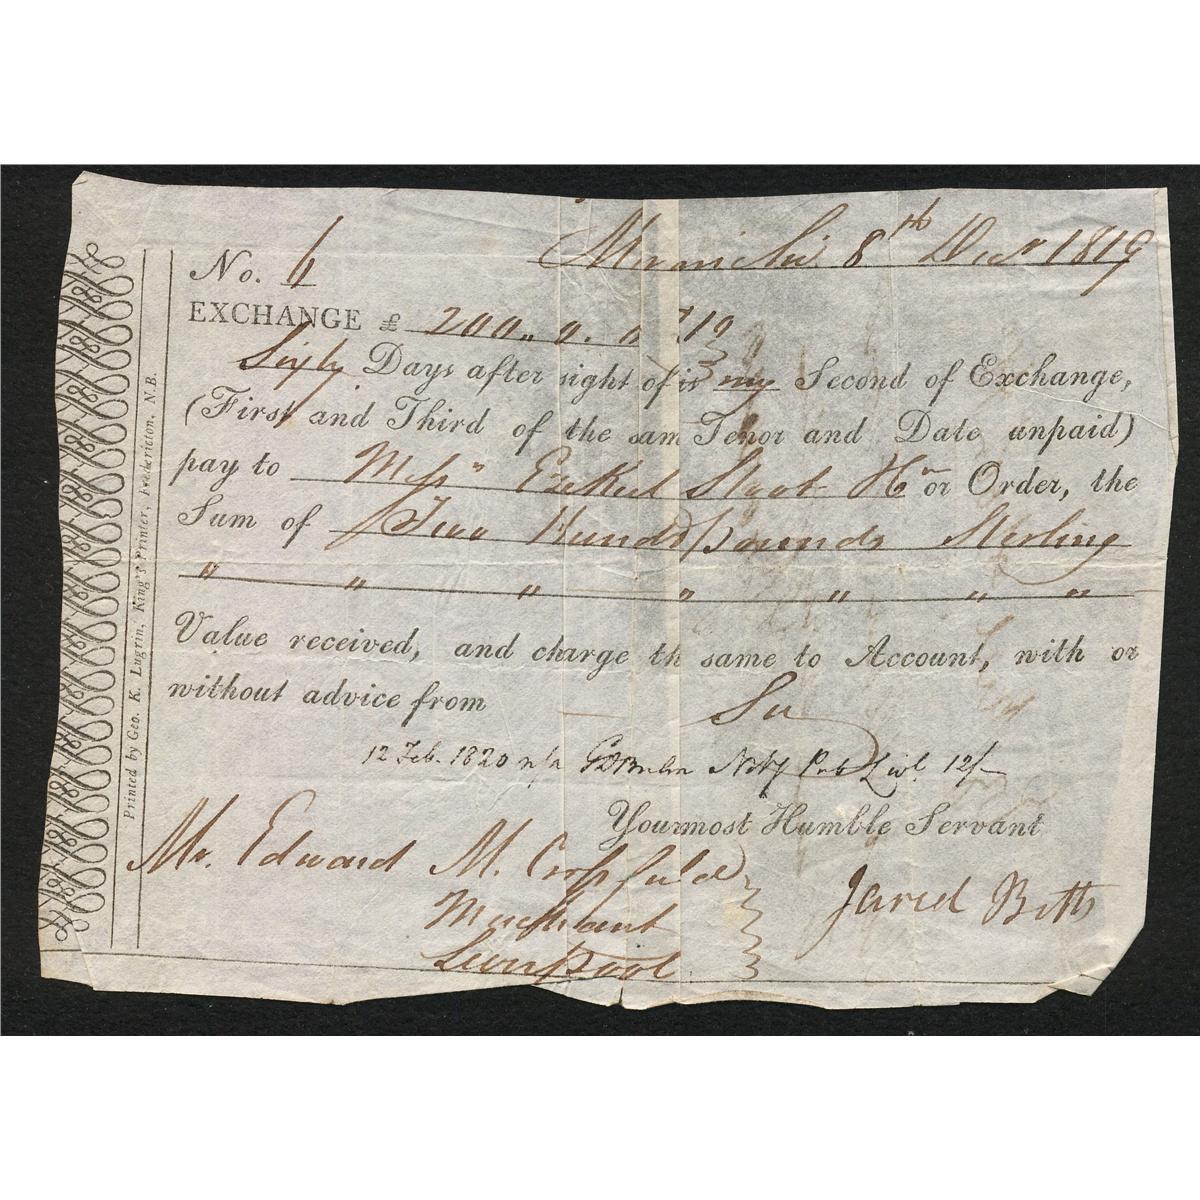 No. 6 8th Decr 1819
EXCHANGE £ 200 " 0 . 0
Sixty Days after sight of is my Second of Exchange,
(First and Third of the sam Tenor and Date unpaid)
pay to Messrs Ezekiel or Order, the
Sum of Two Hundd Pounds Sterling
" " " " " " "
Value received, and charge th same to Account, with or
without advice from
Sir
12 Feb. 1820 n/a Noty Pub Livl 12/-
Yourmost Humble Servant
Mr. Edward M. Crossfield
Jared Betts
Merchant
Liverpool
Printed by Geo. K. Lugrin, King's Printer, Fredericton, N.B.